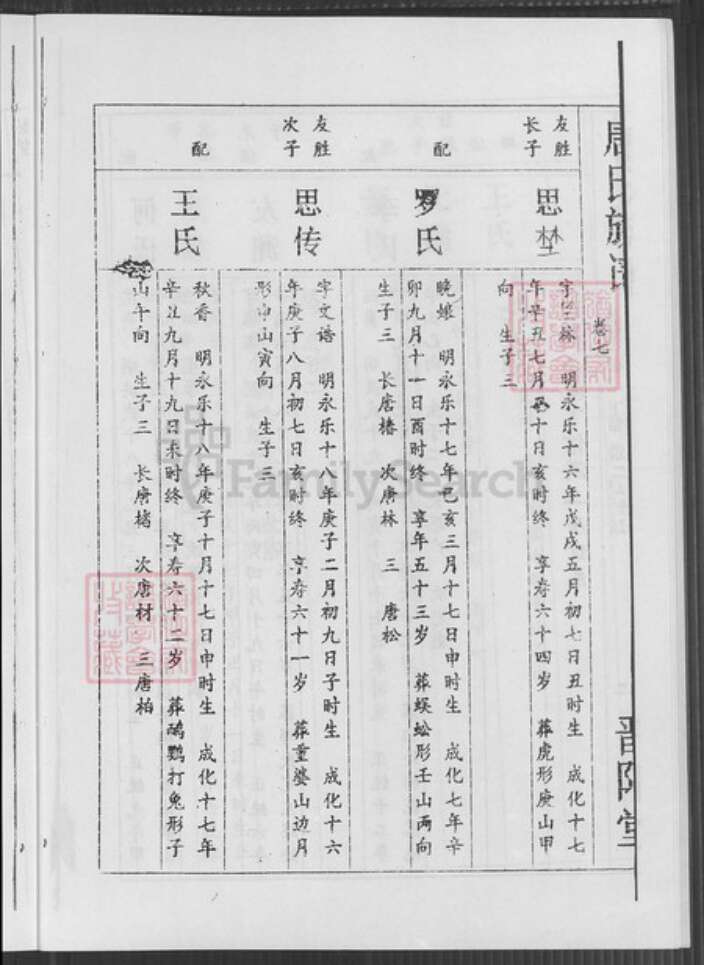 周氏族谱
卷七
晋阳堂
友胜
长子
思埜
字 林 明永乐十六年戊戌五月初七日丑时生 成化十七
年辛丑七月 十日亥时终 享寿六十四岁 葬虎形庚山甲
向 生子三
配
罗氏
晚娘 明永乐十七年己亥三月十七日申时生 成化七年辛
卯九月十一日酉时终 享年五十三岁 葬蜈蚣形壬山丙向
生子三 长唐椿 次唐林 三 唐松
友胜
次子
思传
字文诰 明永乐十八年庚子二月初九日子时生 成化十六
年庚子八月初七日亥时终 享寿六十一岁 葬董婆山边月
形申山寅向 生子三
配
王氏
秋香 明永乐十八年庚子十月十七日申时生 成化十七年
辛丑九月十九日未时终 享寿六十二岁 葬 鹦打兔形子
山午向 生子三 长唐 次唐材 三唐柏
FamilySearch